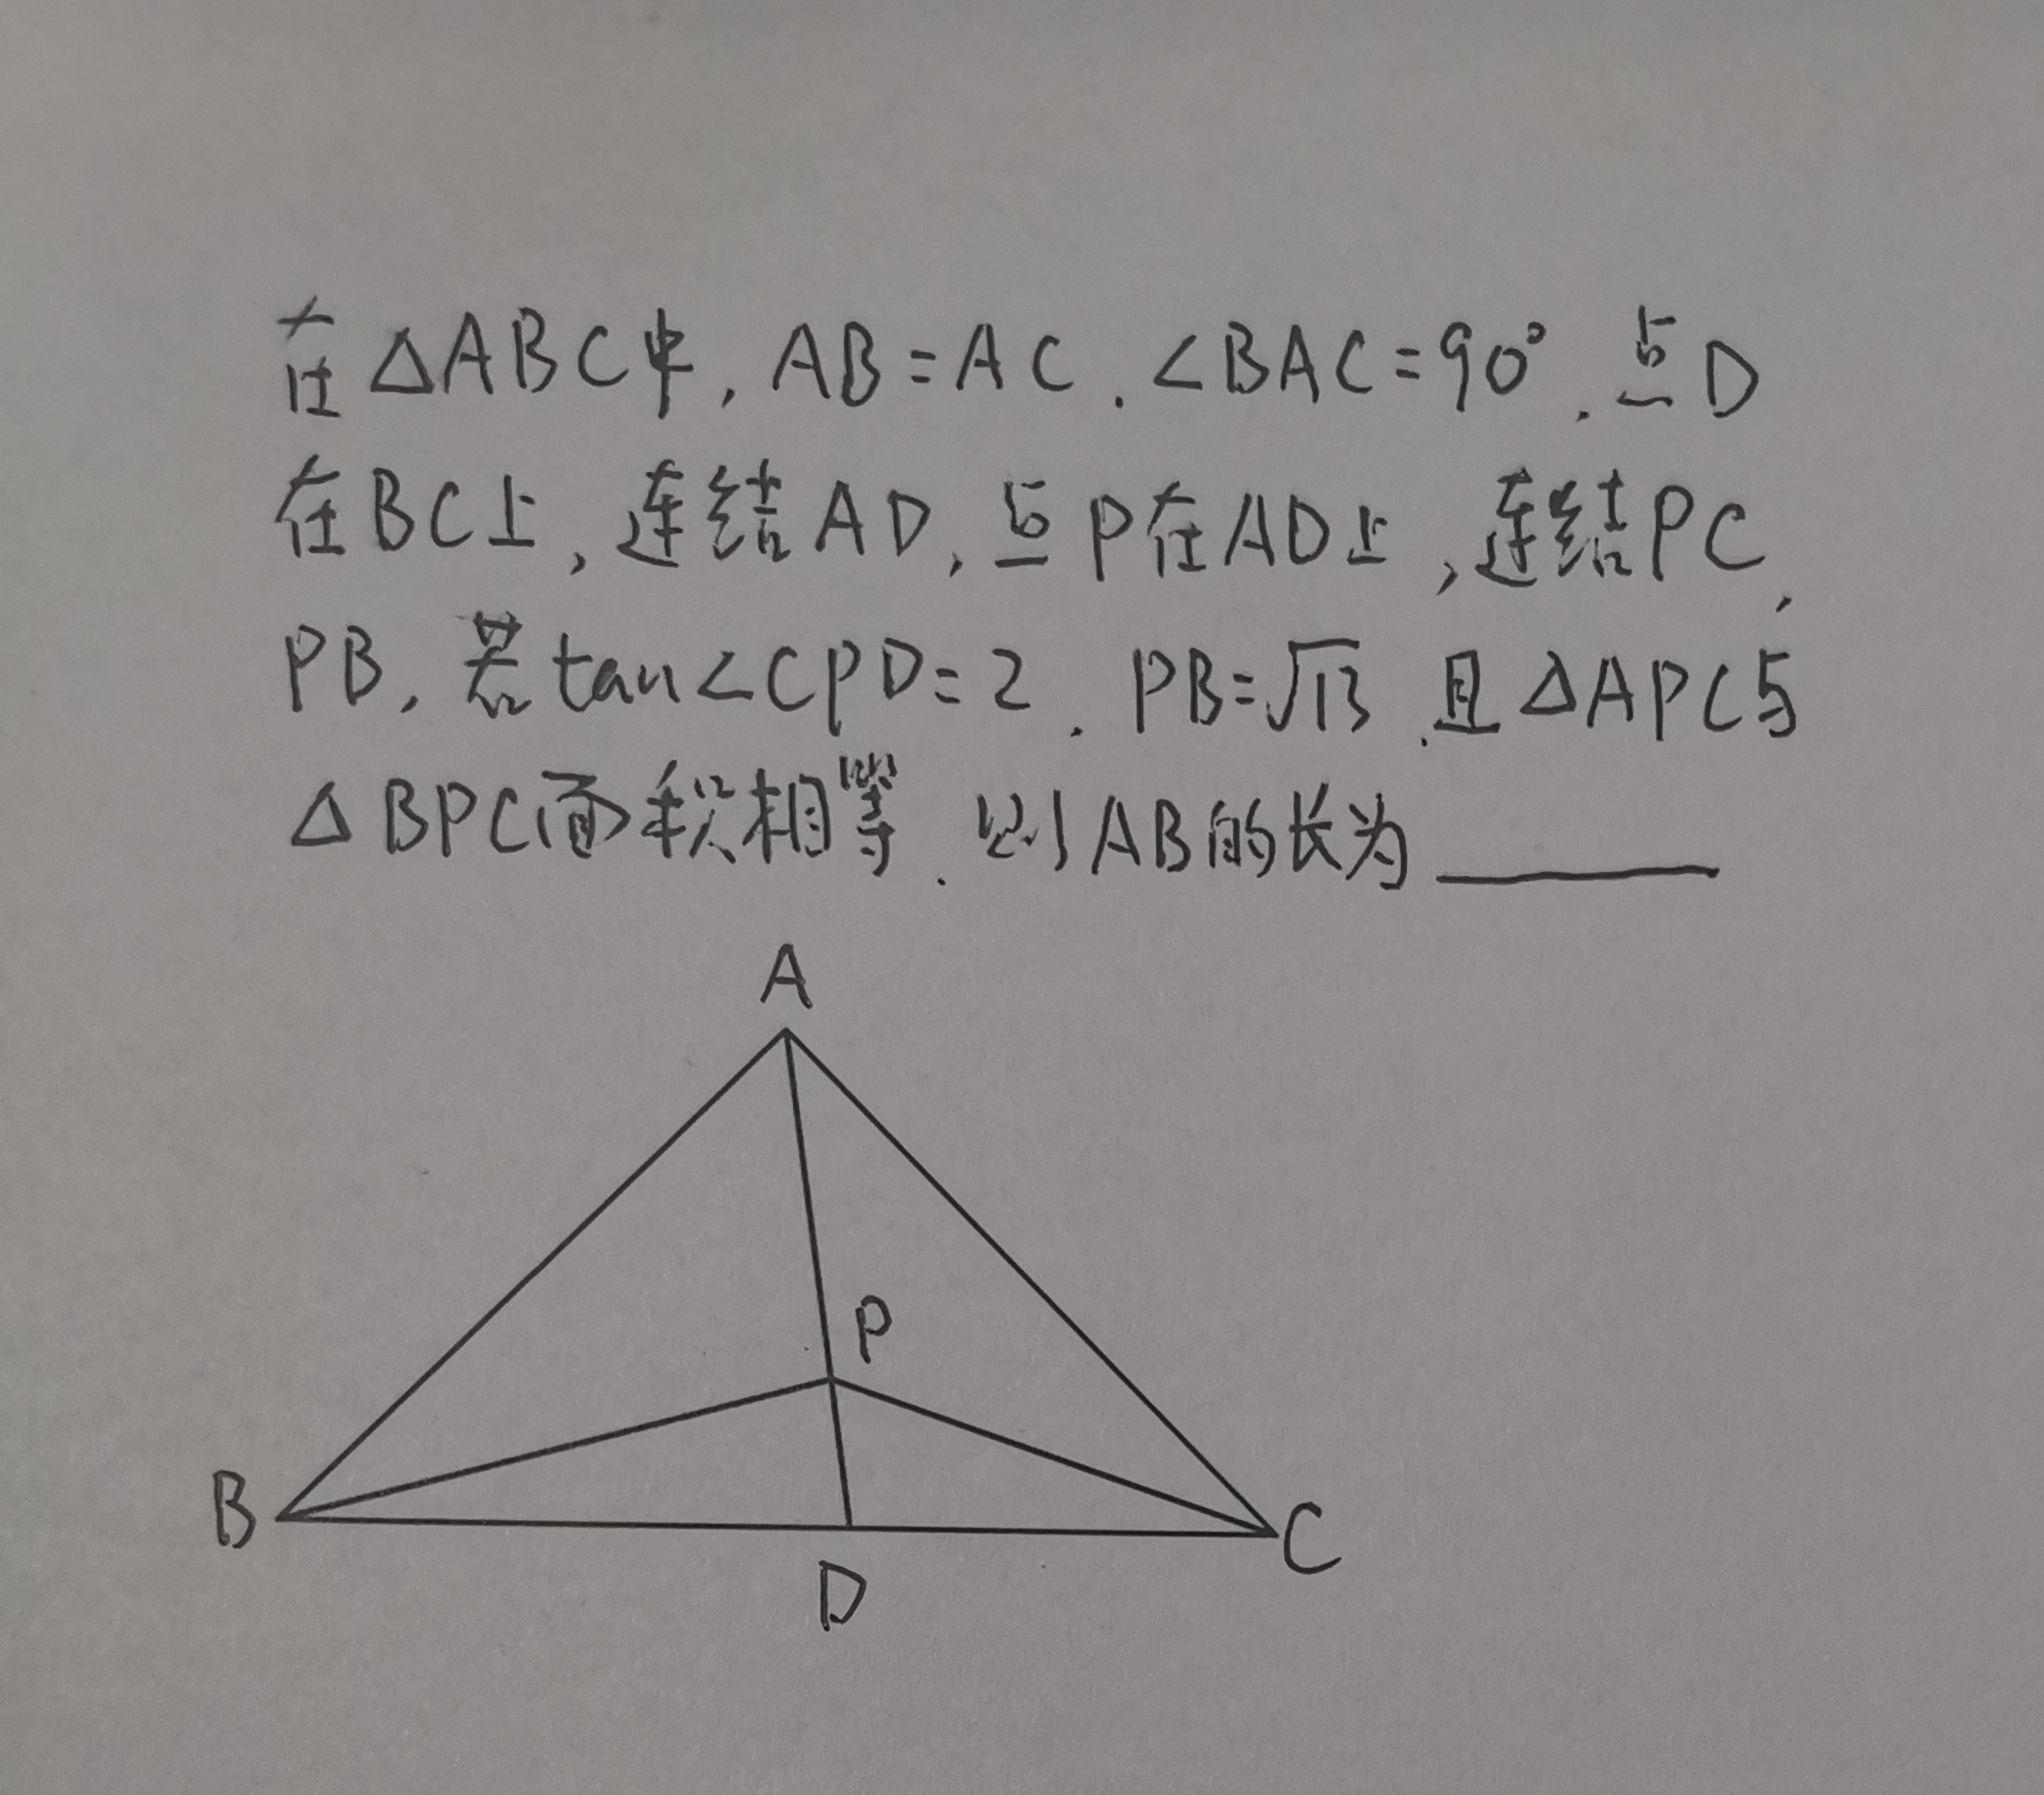 在△ABC中, AB=AC. ∠BAC=90°. 点D
在BC上, 连结AD, 点P在AD上, 连结PC,
PB. 若tan∠CPD=2. PB=√13. 且△APC与
△BPC面积相等. 则AB的长为______
A
P
B
C
D